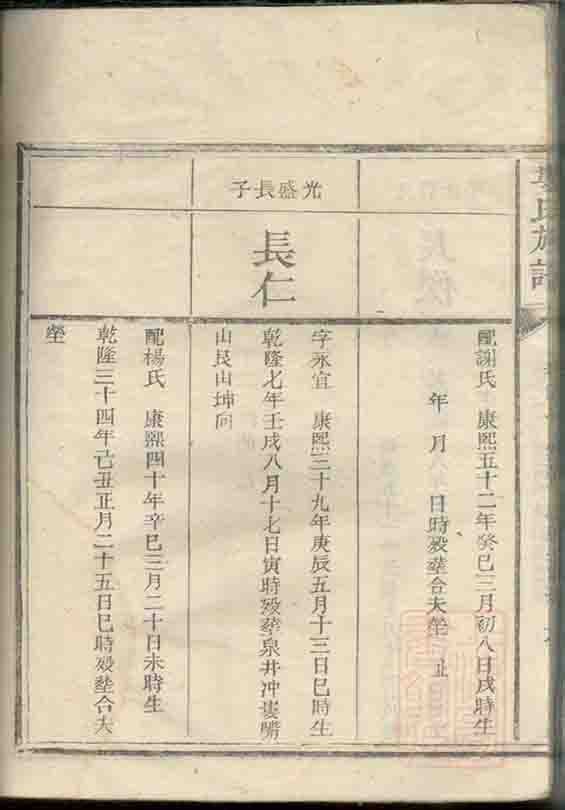 氏族譜
配謝氏 康熙五十二年癸巳三月初八日戌時生
年 月 日時歿塟合夫塋 止
光盛長子
長仁
字永宜 康熙三十九年庚辰五月十三日巳時生
乾隆七年壬戌八月十七日寅時歿塟泉井冲婁嘴
山艮山坤向
配楊氏 康熙四十年辛巳三月二十日未時生
乾隆三十四年己丑正月二十五日巳時歿塟合夫
塋